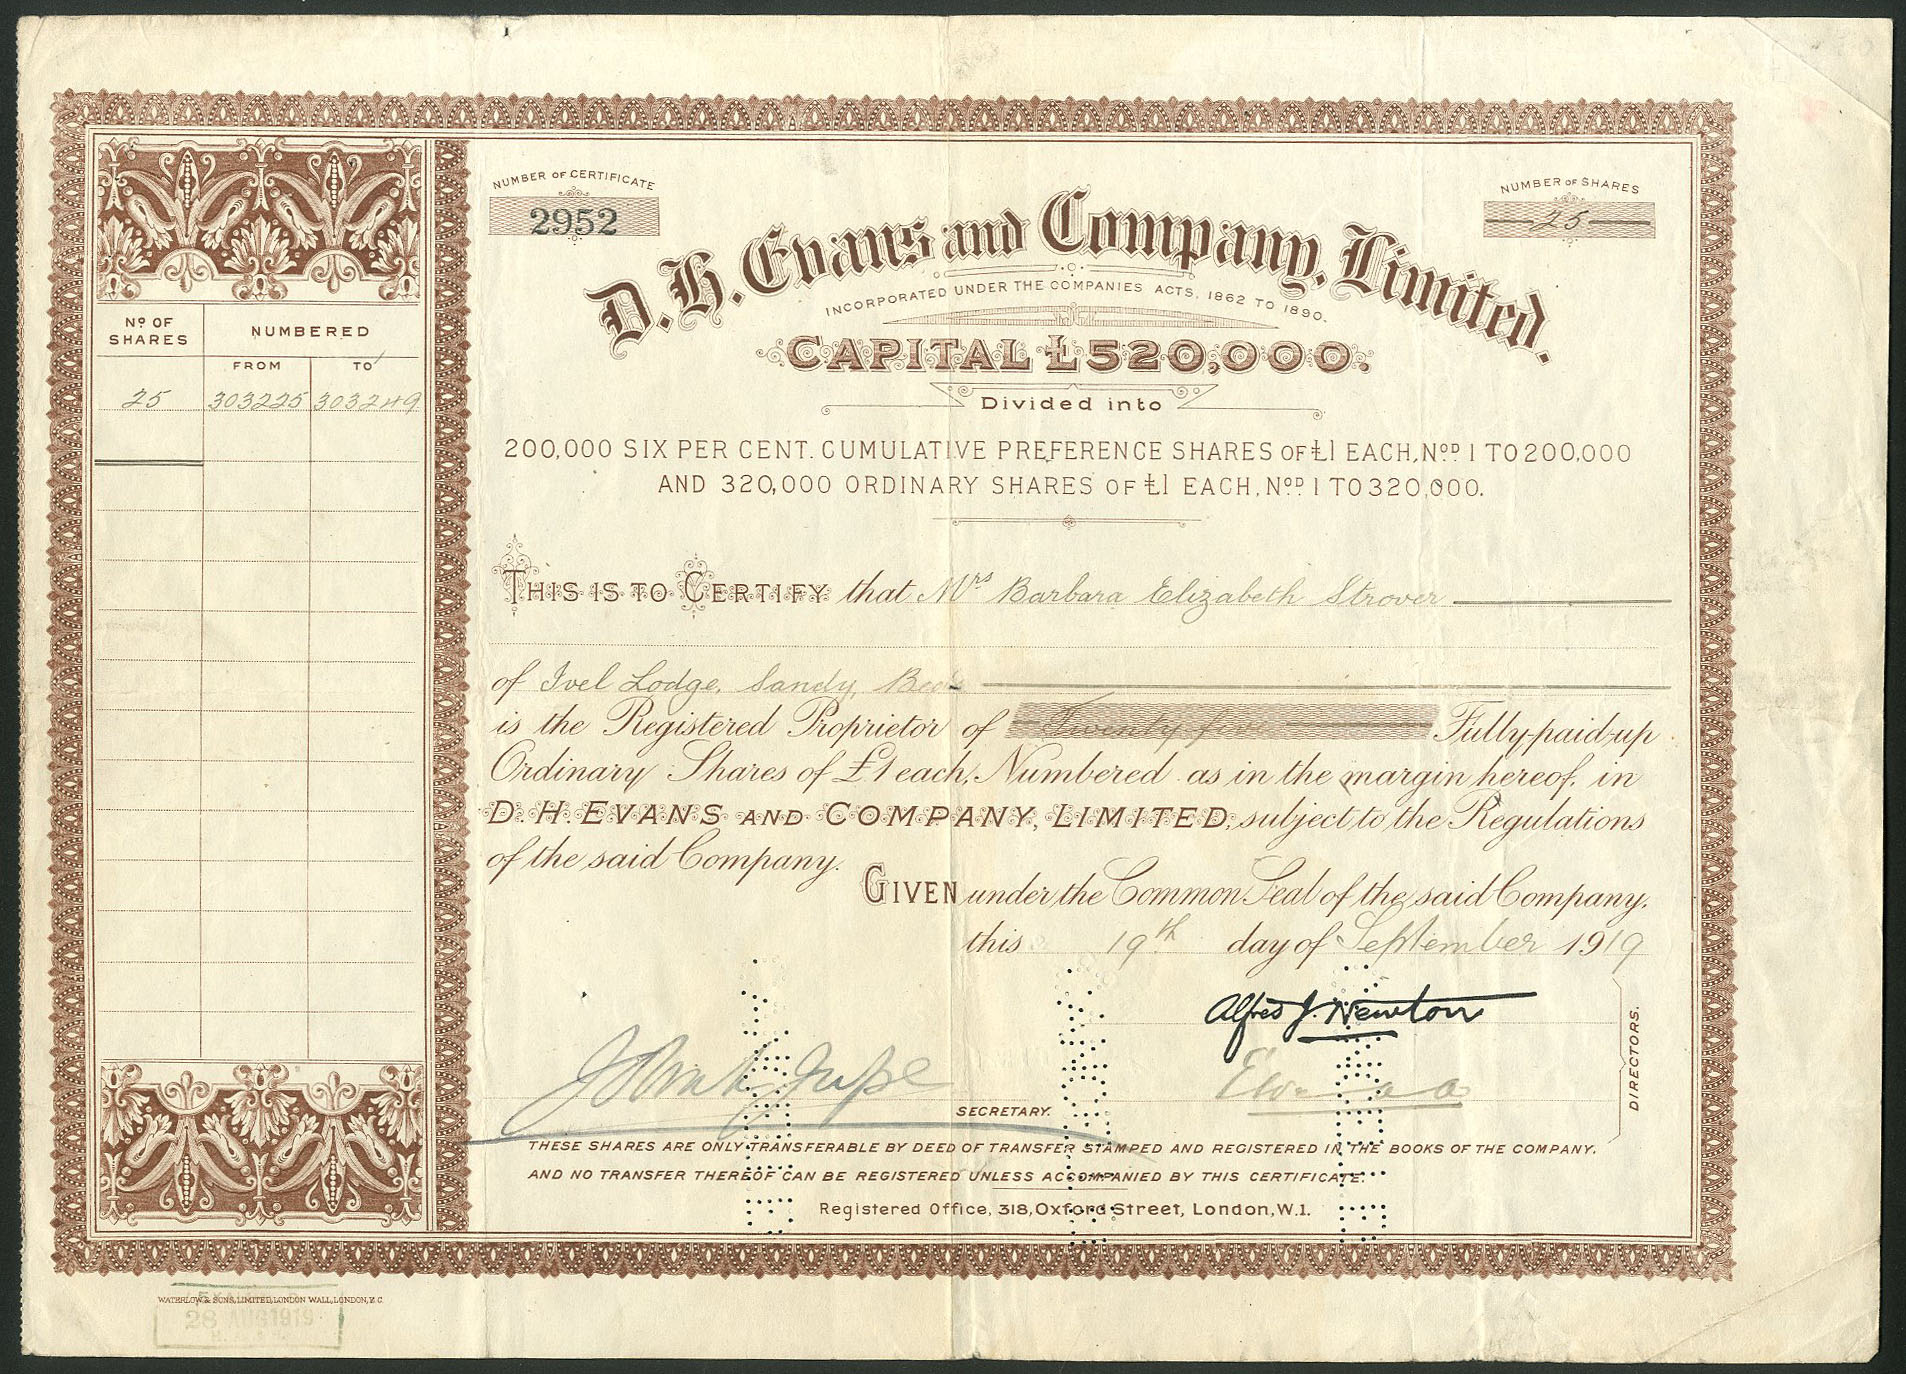 NUMBER OF CERTIFICATE
2952
NUMBER OF SHARES
25
D. H. Evans and Company, Limited.
INCORPORATED UNDER THE COMPANIES ACTS, 1862 TO 1890.
CAPITAL £520,000.
Divided into
200,000 SIX PER CENT. CUMULATIVE PREFERENCE SHARES OF £1 EACH, Nos. 1 TO 200,000
AND 320,000 ORDINARY SHARES OF £1 EACH, Nos. 1 TO 320,000.
No OF SHARES
NUMBERED
FROM
TO
25 303225 303249
THIS IS TO CERTIFY that Mrs Barbara Elizabeth Strover
of Ivel Lodge, Sandy,
is the Registered Proprietor of Twenty five Fully-paid-up
Ordinary Shares of £1 each, Numbered as in the margin hereof, in
D. H. EVANS AND COMPANY, LIMITED, subject to the Regulations
of the said Company.
GIVEN under the Common Seal of the said Company,
this 19th day of September 1919
Alfred J. Newton
DIRECTORS.
SECRETARY.
THESE SHARES ARE ONLY TRANSFERABLE BY DEED OF TRANSFER STAMPED AND REGISTERED IN THE BOOKS OF THE COMPANY,
AND NO TRANSFER THEREOF CAN BE REGISTERED UNLESS ACCOMPANIED BY THIS CERTIFICATE.
Registered Office, 318, Oxford Street, London, W.1.
WATERLOW & SONS, LIMITED, LONDON WALL, LONDON, E.C.
28 AUG 1919